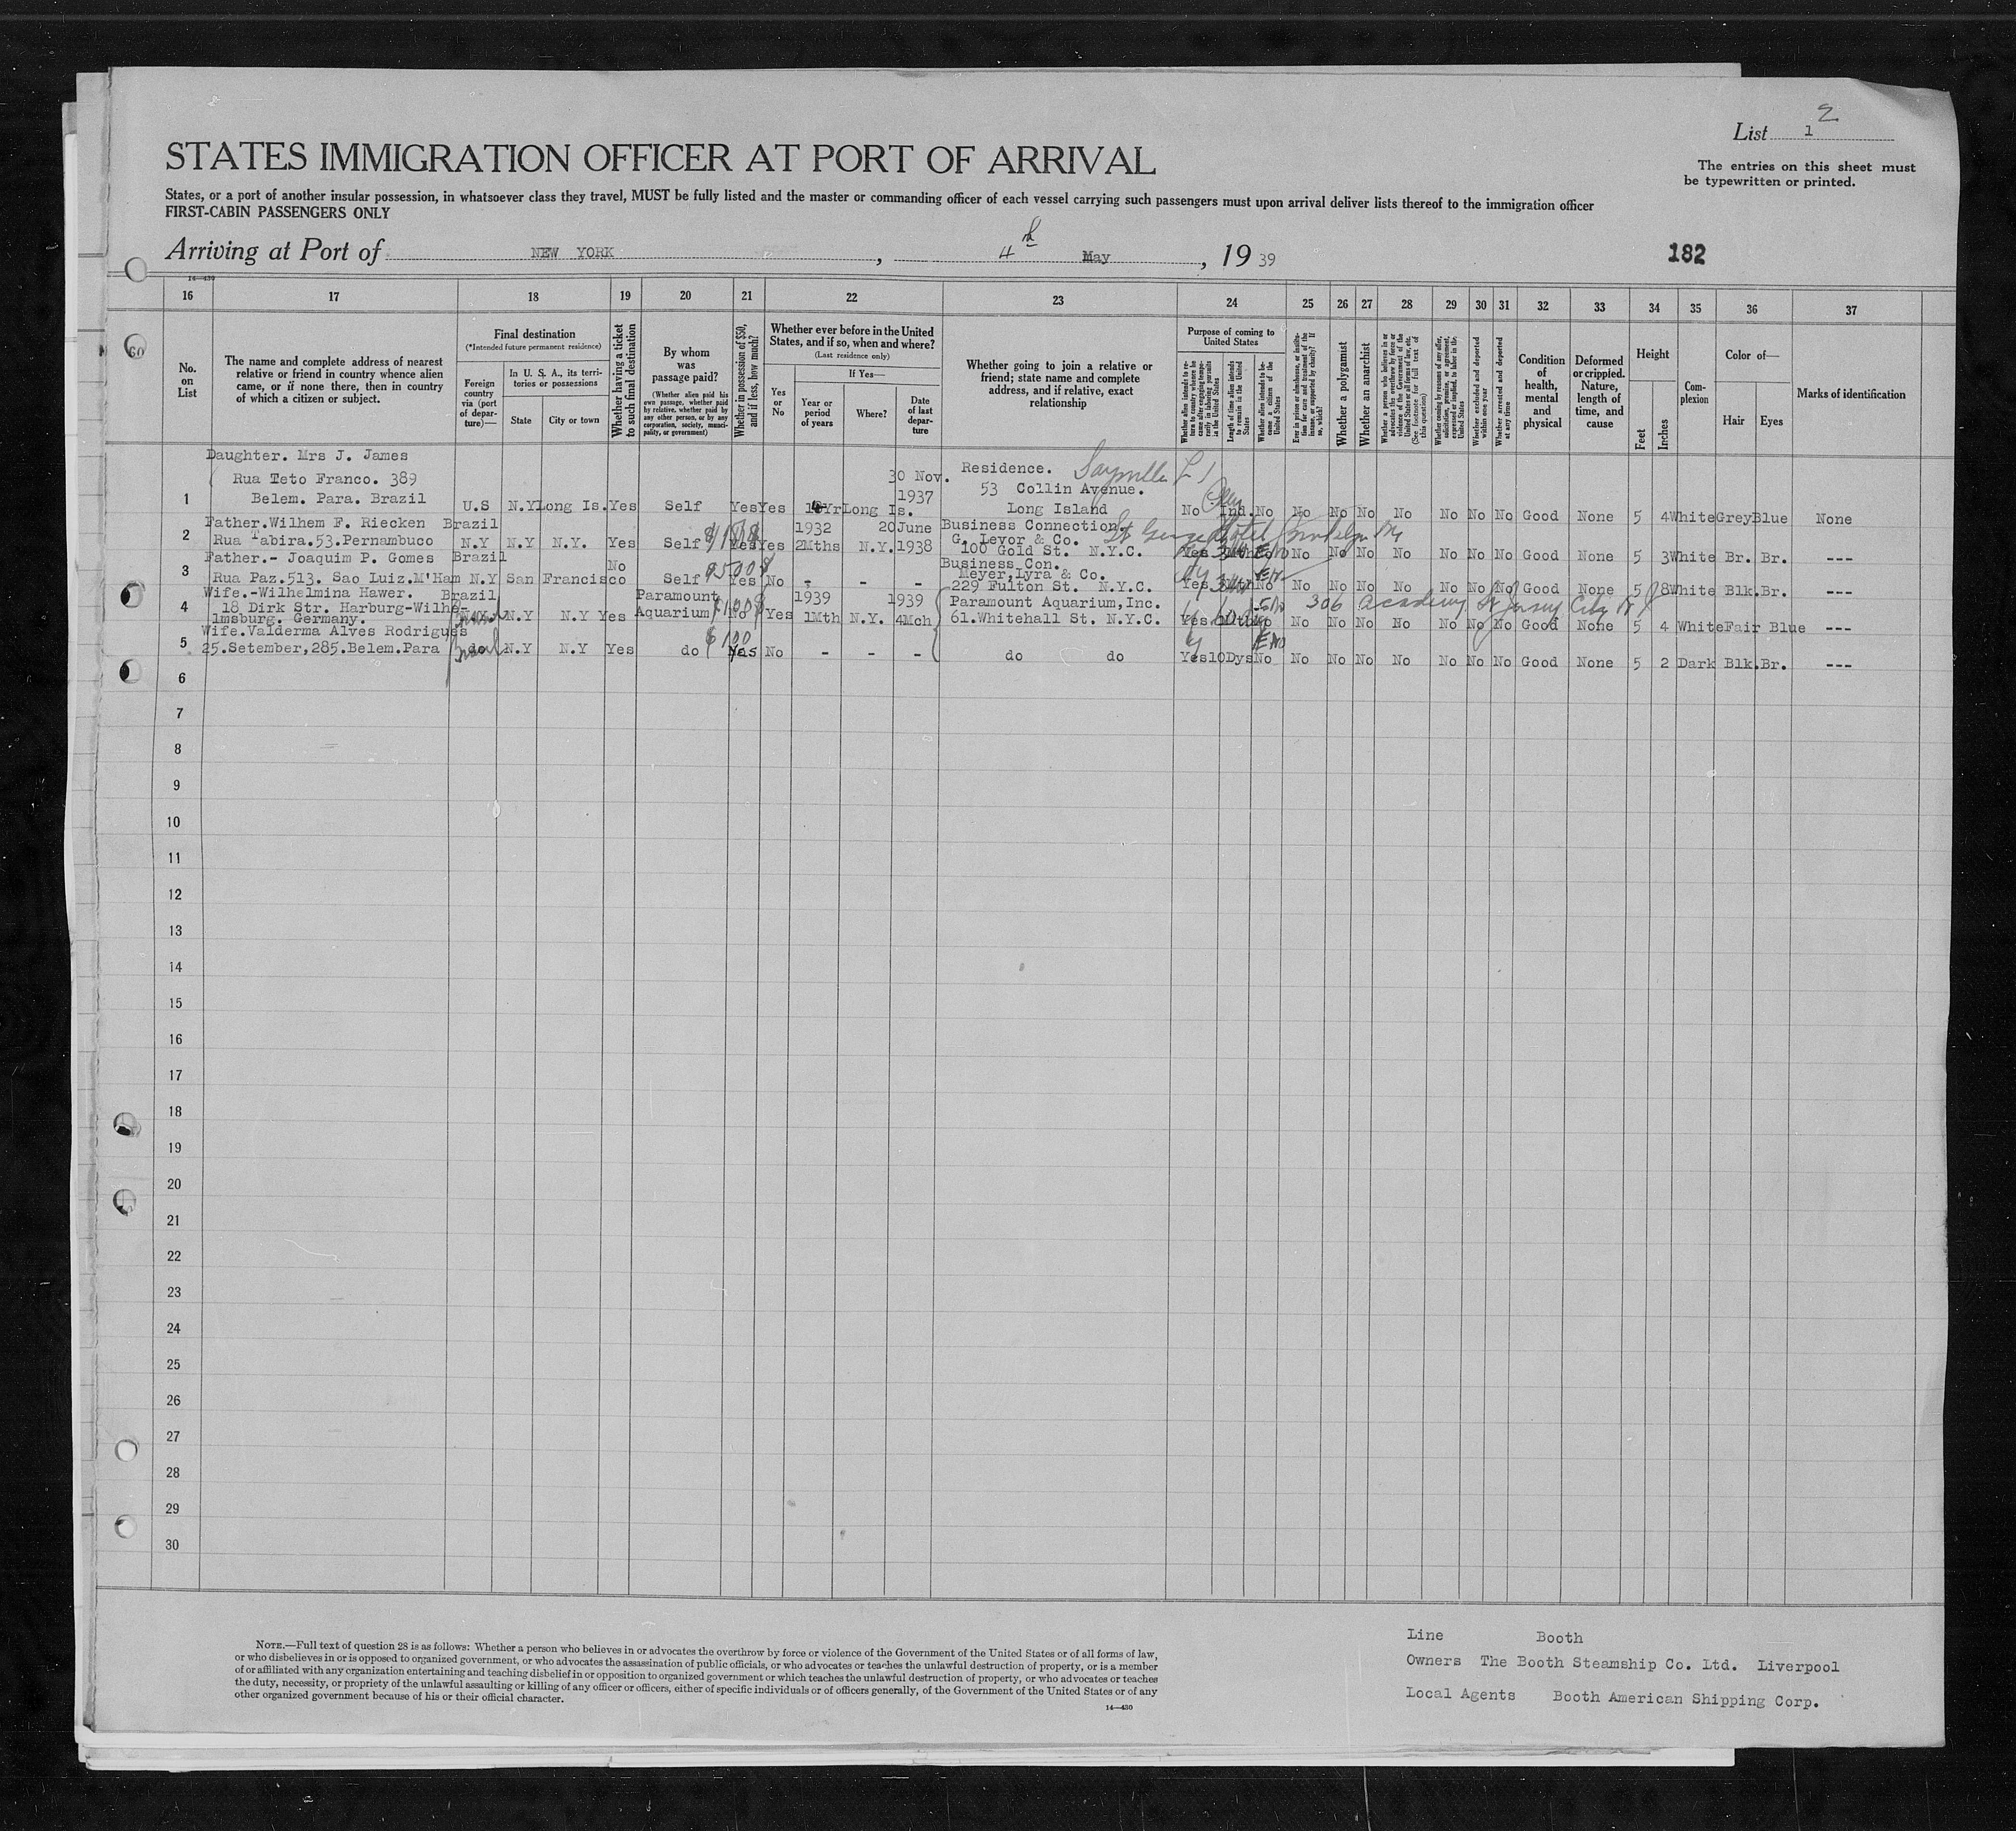 List 1 2
The entries on this sheet must
be typewritten or printed.
STATES IMMIGRATION OFFICER AT PORT OF ARRIVAL
States, or a port of another insular possession, in whatsoever class they travel, MUST be fully listed and the master or commanding officer of each vessel carrying such passengers must upon arrival deliver lists thereof to the immigration officer
FIRST-CABIN PASSENGERS ONLY
Arriving at Port of NEW YORK, 4th May, 1939
182
14—430
16 17 18 19 20 21 22 23 24 25 26 27 28 29 30 31 32 33 34 35 36 37
No. on List
The name and complete address of nearest
relative or friend in country whence alien
came, or if none there, then in country
of which a citizen or subject.
Final destination
(*Intended future permanent residence)
Foreign country via (port of departure)—
In U. S. A., its territories or possessions
State
City or town
Whether having a ticket to such final destination
By whom was passage paid?
(Whether alien paid his own passage, whether paid by relative, whether paid by any other person, or by any corporation, society, municipality, or government)
Whether in possession of $50, and if less, how much?
Whether ever before in the United States, and if so, when and where?
(Last residence only)
Yes or No
If Yes—
Year or period of years
Where?
Date of last departure
Whether going to join a relative or
friend; state name and complete
address, and if relative, exact
relationship
Purpose of coming to United States
Whether alien intends to return to country whence he came after engaging temporarily in laboring pursuits in the United States
Length of time alien intends to remain in the United States
Whether alien intends to become a citizen of the United States
Ever in prison or almshouse, or institution for care and treatment of the insane, or supported by charity? If so, which?
Whether a polygamist
Whether an anarchist
Whether a person who believes in or advocates the overthrow by force or violence of the Government of the United States or all forms of law, etc. (See footnote for full text of this question)
Whether coming by reasons of any offer, solicitation, promise, or agreement, expressed or implied, to labor in the United States
Whether excluded and deported within one year
Whether arrested and deported at any time
Condition of health, mental and physical
Deformed or crippled. Nature, length of time, and cause
Height
Feet
Inches
Complexion
Color of—
Hair
Eyes
Marks of identification
Daughter. Mrs J. James
Rua Teto Franco. 389 30 Nov. Residence. Sayville L I
1 Belem. Para. Brazil U.S N.Y Long Is. Yes Self Yes Yes Yr Long Is. 1937 53 Collin Avenue. Long Island No Ind. No No No No No No No No Good None 5 4 White Grey Blue None
Father. Wilhem F. Riecken Brazil 1932 20 June Business Connection. St George Hotel Brooklyn NY
2 Rua Tabira.53.Pernambuco N.Y N.Y N.Y. Yes Self Yes Yes 2Mths N.Y. 1938 G. Levor & Co. 100 Gold St. N.Y.C. Yes No No No No No No No Good None 5 3 White Br. Br. ---
Father.- Joaquim P. Gomes Brazil No Business Con.
3 Rua Paz.513. Sao Luiz.M'Ham N.Y San Francisco Self Yes No - - - Meyer, Lyra & Co. 229 Fulton St. N.Y.C. Yes 3Mth No No No No No No No No Good None 5 8 White Blk. Br. ---
Wife.-Wilhelmina Hawer. Brazil Paramount $100 1939 1939 Paramount Aquarium, Inc. 306 Academy St Jersey City N J
4 18 Dirk Str. Harburg-Wilhe-
lmsburg. Germany. N.Y N.Y Yes Aquarium No Yes 1Mth N.Y. 4Mch 61.Whitehall St. N.Y.C. Yes No No No No No No No Good None 5 4 White Fair Blue ---
Wife. Valderma Alves Rodrigues $100
5 25.Setember,285.Belem.Para do N.Y N.Y Yes do Yes No - - - do do Yes 10Dys No No No No No No No No Good None 5 2 Dark Blk. Br. ---
6
7
8
9
10
11
12
13
14
15
16
17
18
19
20
21
22
23
24
25
26
27
28
29
30
NOTE.—Full text of question 28 is as follows: Whether a person who believes in or advocates the overthrow by force or violence of the Government of the United States or of all forms of law,
or who disbelieves in or is opposed to organized government, or who advocates the assassination of public officials, or who advocates or teaches the unlawful destruction of property, or is a member
of or affiliated with any organization entertaining and teaching disbelief in or opposition to organized government or which teaches the unlawful destruction of property, or who advocates or teaches
the duty, necessity, or propriety of the unlawful assaulting or killing of any officer or officers, either of specific individuals or of officers generally, of the Government of the United States or of any
other organized government because of his or their official character.
14—430
Line Booth
Owners The Booth Steamship Co. Ltd. Liverpool
Local Agents Booth American Shipping Corp.